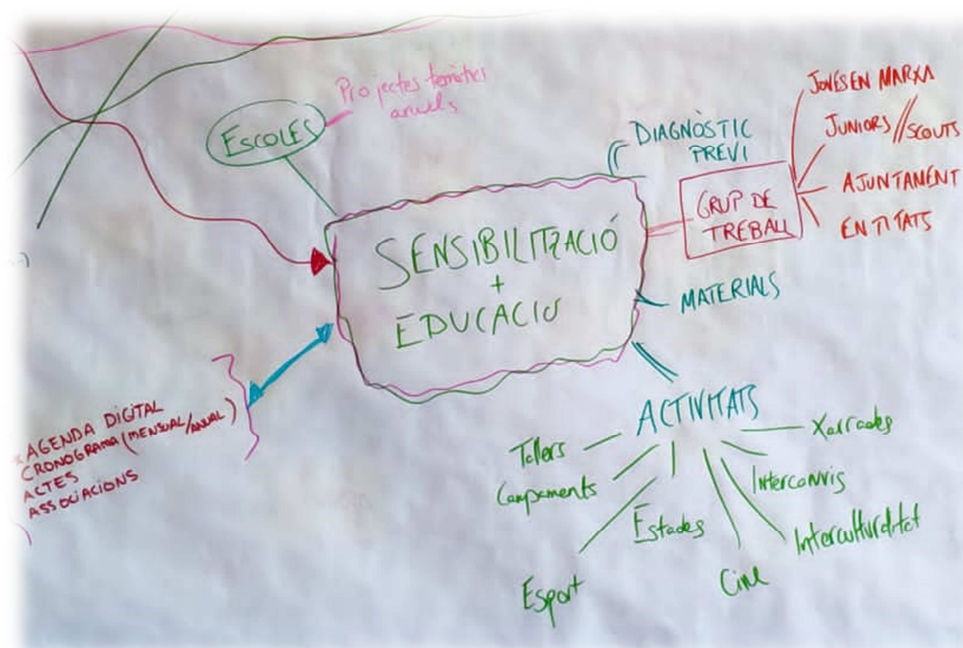 Projectes temàtics
anuels
ESCOLES
SENSIBILITZACIÓ
+
EDUCACIÓ
DIAGNÒSTIC
PREVI
GRUP DE
TREBALL
JOVES EN MARXA
JUNIORS // SCOUTS
AJUNTAMENT
ENTITATS
MATERIALS
ACTIVITATS
Tallers
Campaments
Esport
Estades
Cine
Interculturditat
Intercanvis
Xarrades
AGENDA DIGITAL
CRONOGRAMA (MENSUAL/ANUAL)
ACTES
ASSOCIACIONS